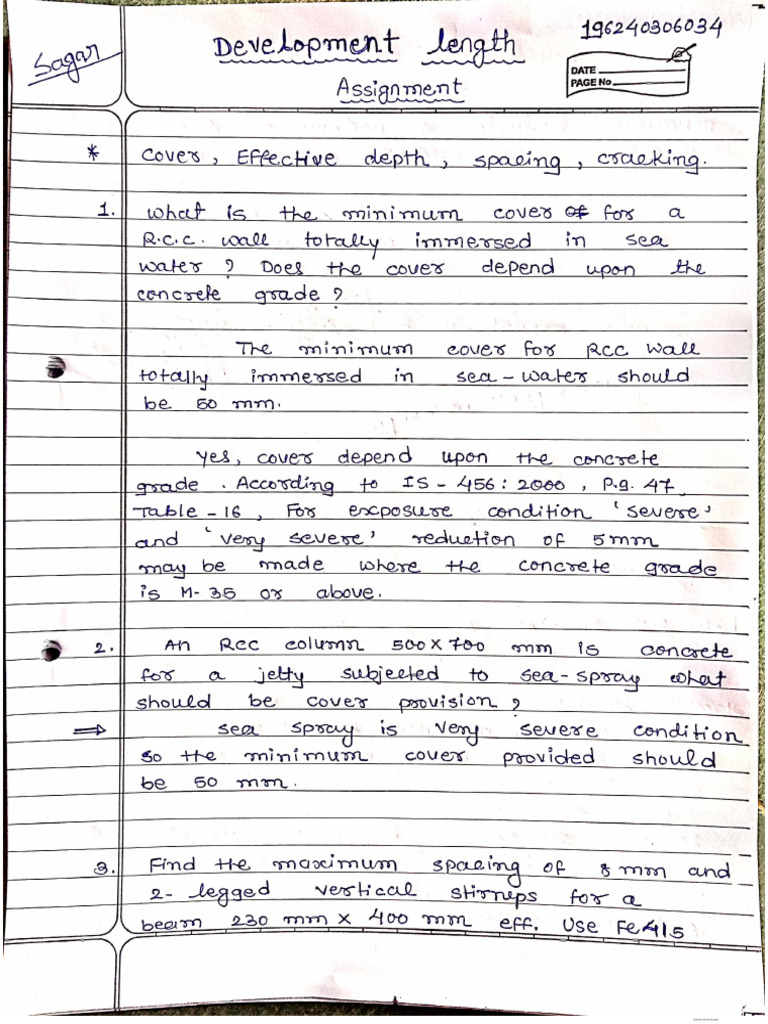 Sagar
Development length
196240306034
Assignment
DATE
PAGE No
* Cover, Effective depth, spacing, cracking.
1. What is the minimum cover of for a
R.C.C. wall totally immersed in sea
water ? Does the cover depend upon the
concrete grade ?
The minimum cover for RCC wall
totally immersed in sea-water should
be 50 mm.
Yes, cover depend upon the concrete
grade. According to IS-456: 2000, P.g. 47
Table-16, For excposure condition 'severe'
and 'very severe' reduction of 5mm
may be made where the concrete grade
is M-35 or above.
2. An RCC column 500 x 700 mm is concrete
for a jetty subjected to sea-spray what
should be cover provision ?
⇒ sea spray is very severe condition
so the minimum cover provided should
be 50 mm.
3. Find the maximum spacing of 8 mm and
2- legged vertical stirrups for a
beam 230 mm x 400 mm eff. Use Fe415